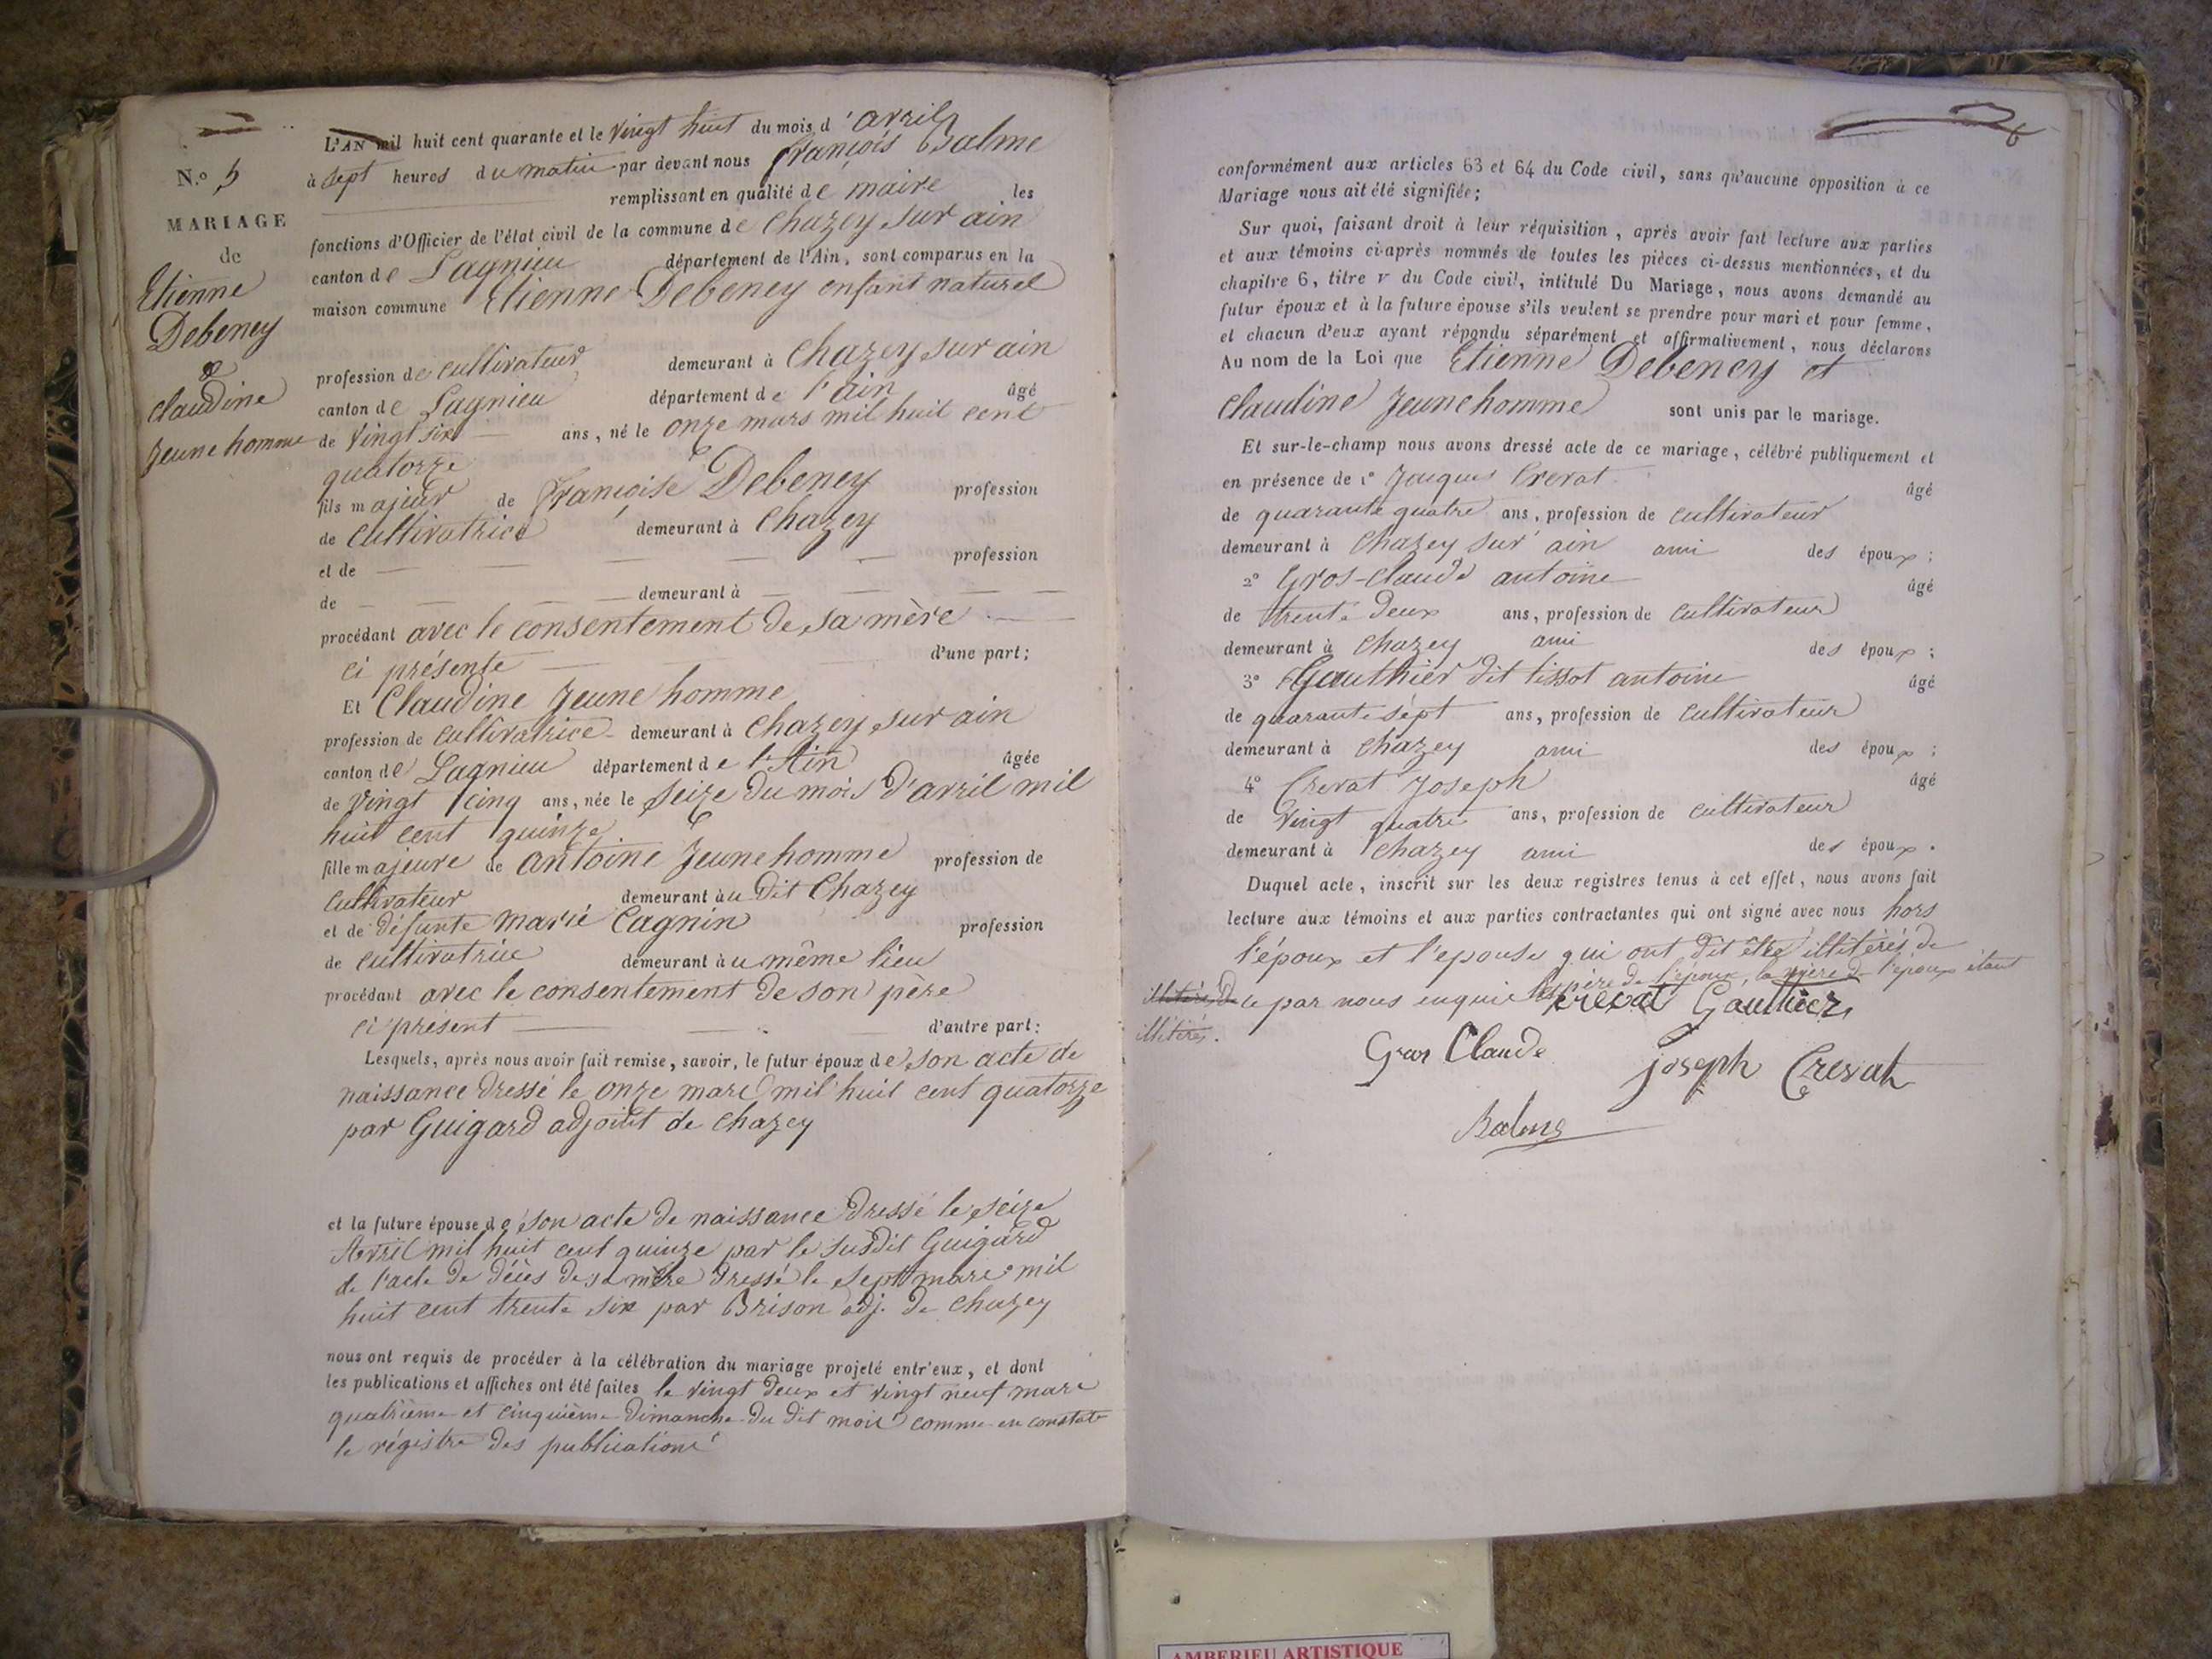 L'AN mil huit cent quarante et le vingt huit du mois d'avril
à sept heures du matin par devant nous françois Balme
remplissant en qualité de maire les
fonctions d'Officier de l'état civil de la commune de Chazey sur ain
canton de Lagnieu département de l'Ain, sont comparus en la
maison commune Etienne Debeney enfant naturel
N.º 5
MARIAGE
de
Etienne
Debeney
&
claudine
Jeune homme
profession de cultivateur demeurant à Chazey sur ain
canton de Lagnieu département de l'ain âgé
de vingt six ans, né le onze mars mil huit cent
quatorze
fils majeur de Françoise Debeney profession
de cultivatrice demeurant à Chazey
et de — — — — profession
de — — — demeurant à — — —
procédant avec le consentement de sa mère
ci présente d'une part;
Et Claudine Jeune homme
profession de cultivatrice demeurant à Chazey sur ain
canton de Lagnieu département de l'Ain âgée
de vingt cinq ans, née le seize du mois d'avril mil
huit cent quinze
fille majeure de antoine Jeune homme profession de
cultivateur demeurant au dit Chazey
et de défunte marie Cagnin profession
de cultivatrice demeurant au même lieu
procédant avec le consentement de son père
ci présent d'autre part:
Lesquels, après nous avoir fait remise, savoir, le futur époux de son acte de
naissance dressé le onze mars mil huit cent quatorze
par Guigard adjoint de chazey
et la future épouse de son acte de naissance dressé le seize
Avril mil huit cent quinze par le susdit Guigard
de l'acte de décès de sa mère dressé le sept mars mil
huit cent trente six par Brison adj. de chazey
nous ont requis de procéder à la célébration du mariage projeté entr'eux, et dont
les publications et affiches ont été faites le vingt deux et vingt neuf mars
quatrième et cinquième dimanche du dit mois comme en constate
le régistre des publications
conformément aux articles 63 et 64 du Code civil, sans qu'aucune opposition à ce
Mariage nous ait été signifiée;
Sur quoi, faisant droit à leur réquisition, après avoir fait lecture aux parties
et aux témoins ci-après nommés de toutes les pièces ci-dessus mentionnées, et du
chapitre 6, titre v du Code civil, intitulé Du Mariage, nous avons demandé au
futur époux et à la future épouse s'ils veulent se prendre pour mari et pour femme,
et chacun d'eux ayant répondu séparément et affirmativement, nous déclarons
Au nom de la Loi que Etienne Debeney et
Claudine Jeune homme sont unis par le mariage.
Et sur-le-champ nous avons dressé acte de ce mariage, célébré publiquement et
en présence de 1º Jacques Crevat âgé
de quarante quatre ans, profession de cultivateur
demeurant à Chazey sur ain ami des époux;
2º Gros-claude antoine âgé
de trente deux ans, profession de cultivateur
demeurant à Chazey ami des époux;
3º Gauthier dit tissot antoine âgé
de quarante sept ans, profession de cultivateur
demeurant à chazey ami des époux;
4º Crevat Joseph âgé
de vingt quatre ans, profession de cultivateur
demeurant à Chazey ami des époux.
Duquel acte, inscrit sur les deux registres tenus à cet effet, nous avons fait
lecture aux témoins et aux parties contractantes qui ont signé avec nous hors
l'époux et l'epouse qui ont dit être illitérés de
père de l'époux, la mère de l'époux étant
ce par nous enquis crevat Gauthier
illitérés.
Gros Claude
Joseph Crevat
Balme
AMBERIEU ARTISTIQUE